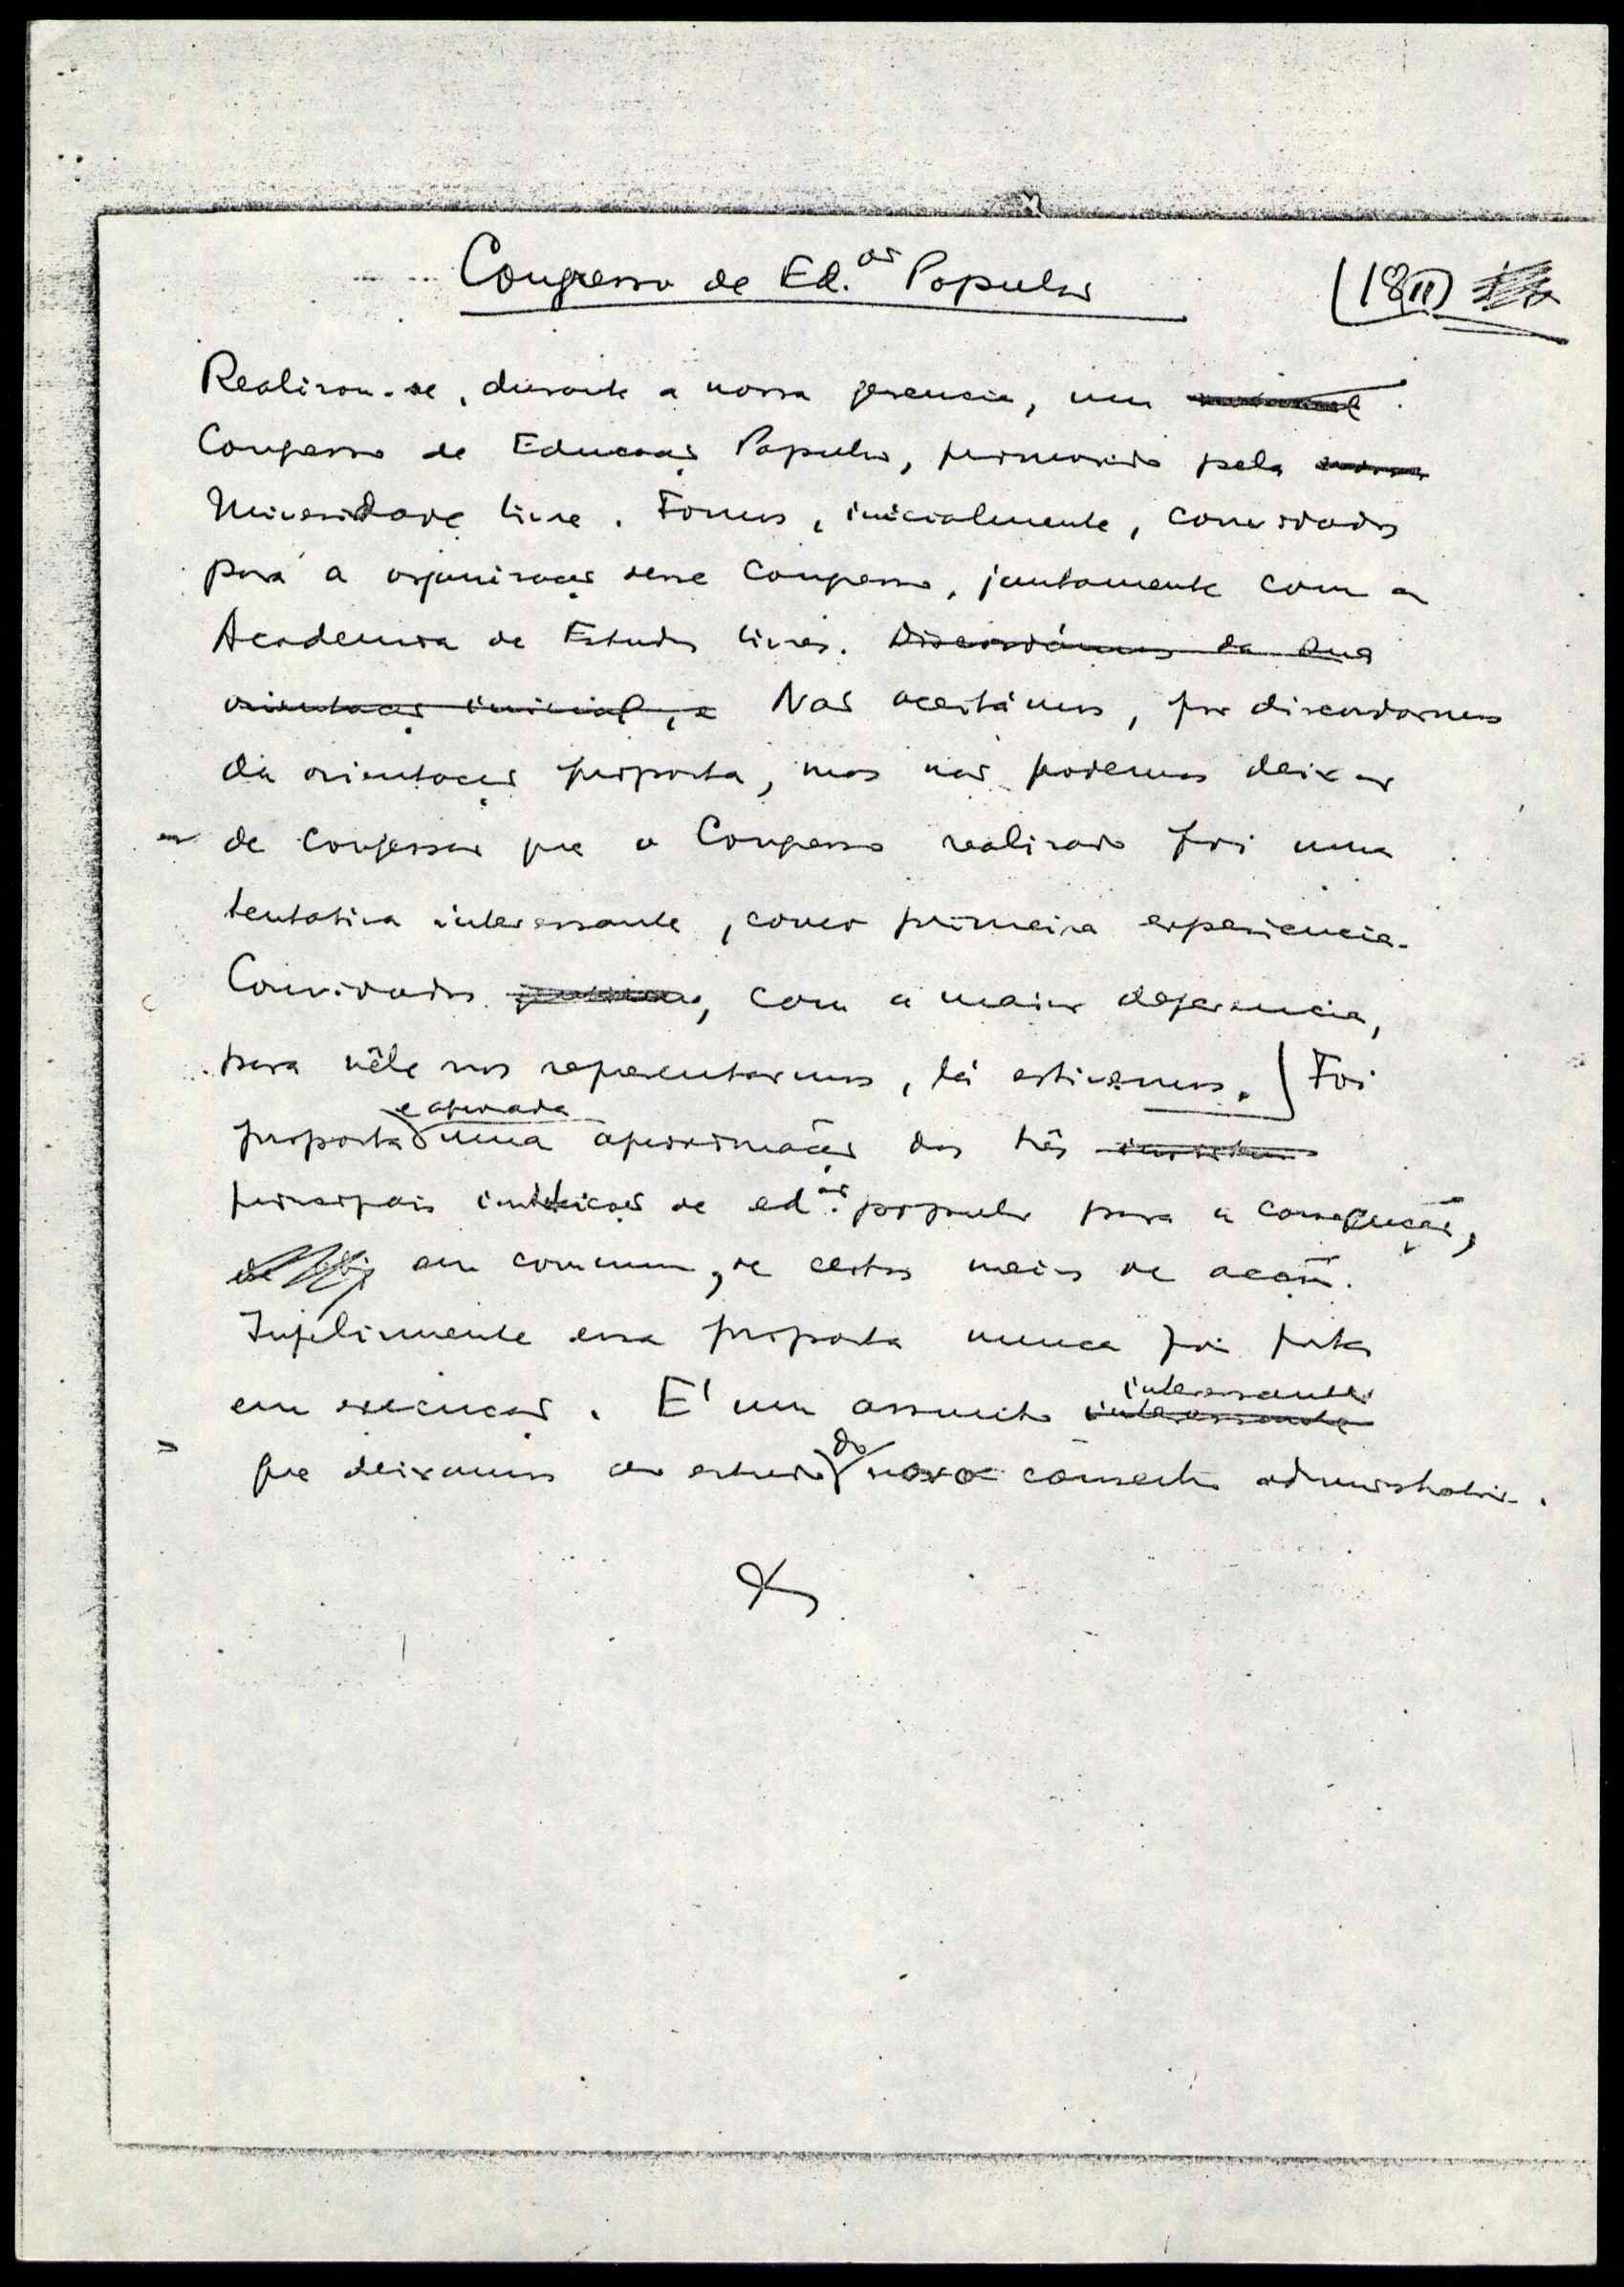 Congresso de Ed.ão Popular
(18 II)
Realizou-se, durante a nossa gerencia, um
Congresso de Educação Popular, promovido pela
Universidade Livre. Fomos, inicialmente, convidados
para a organização desse Congresso, juntamente com a
Academia de Estudos Livres. Discordámos da sua
orientação inicial, e Não aceitámos, por discordarmos
da orientação proposta, mas não podemos deixar
de confessar que o Congresso realizado foi uma
tentativa interessante, como primeira experiencia.
Convidados, com a maior deferencia,
para nêle nos representarmos, lá estivemos. Foi
e aprovada
proposta uma aproximação das três
principais instituições de ed.ão popular para a consecução,
em commum, de certos meios de acção.
Infelizmente essa proposta nunca foi posta
em execução. E' um assunto interessante
interessante
do
que deixamos ao estudo novo conselho administrativo.